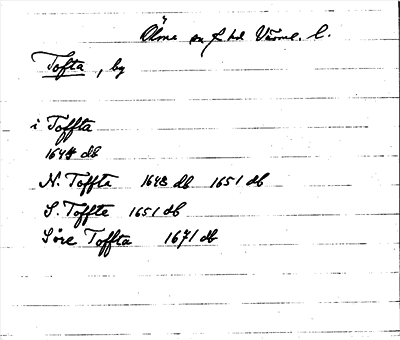 Ölme sn f hd Värml. l.
Tofta, by
i Toffta
1648 db
N. Toffte 1648 db 1651 db
S. Toffte 1651 db
Söre Toffta 1671 db